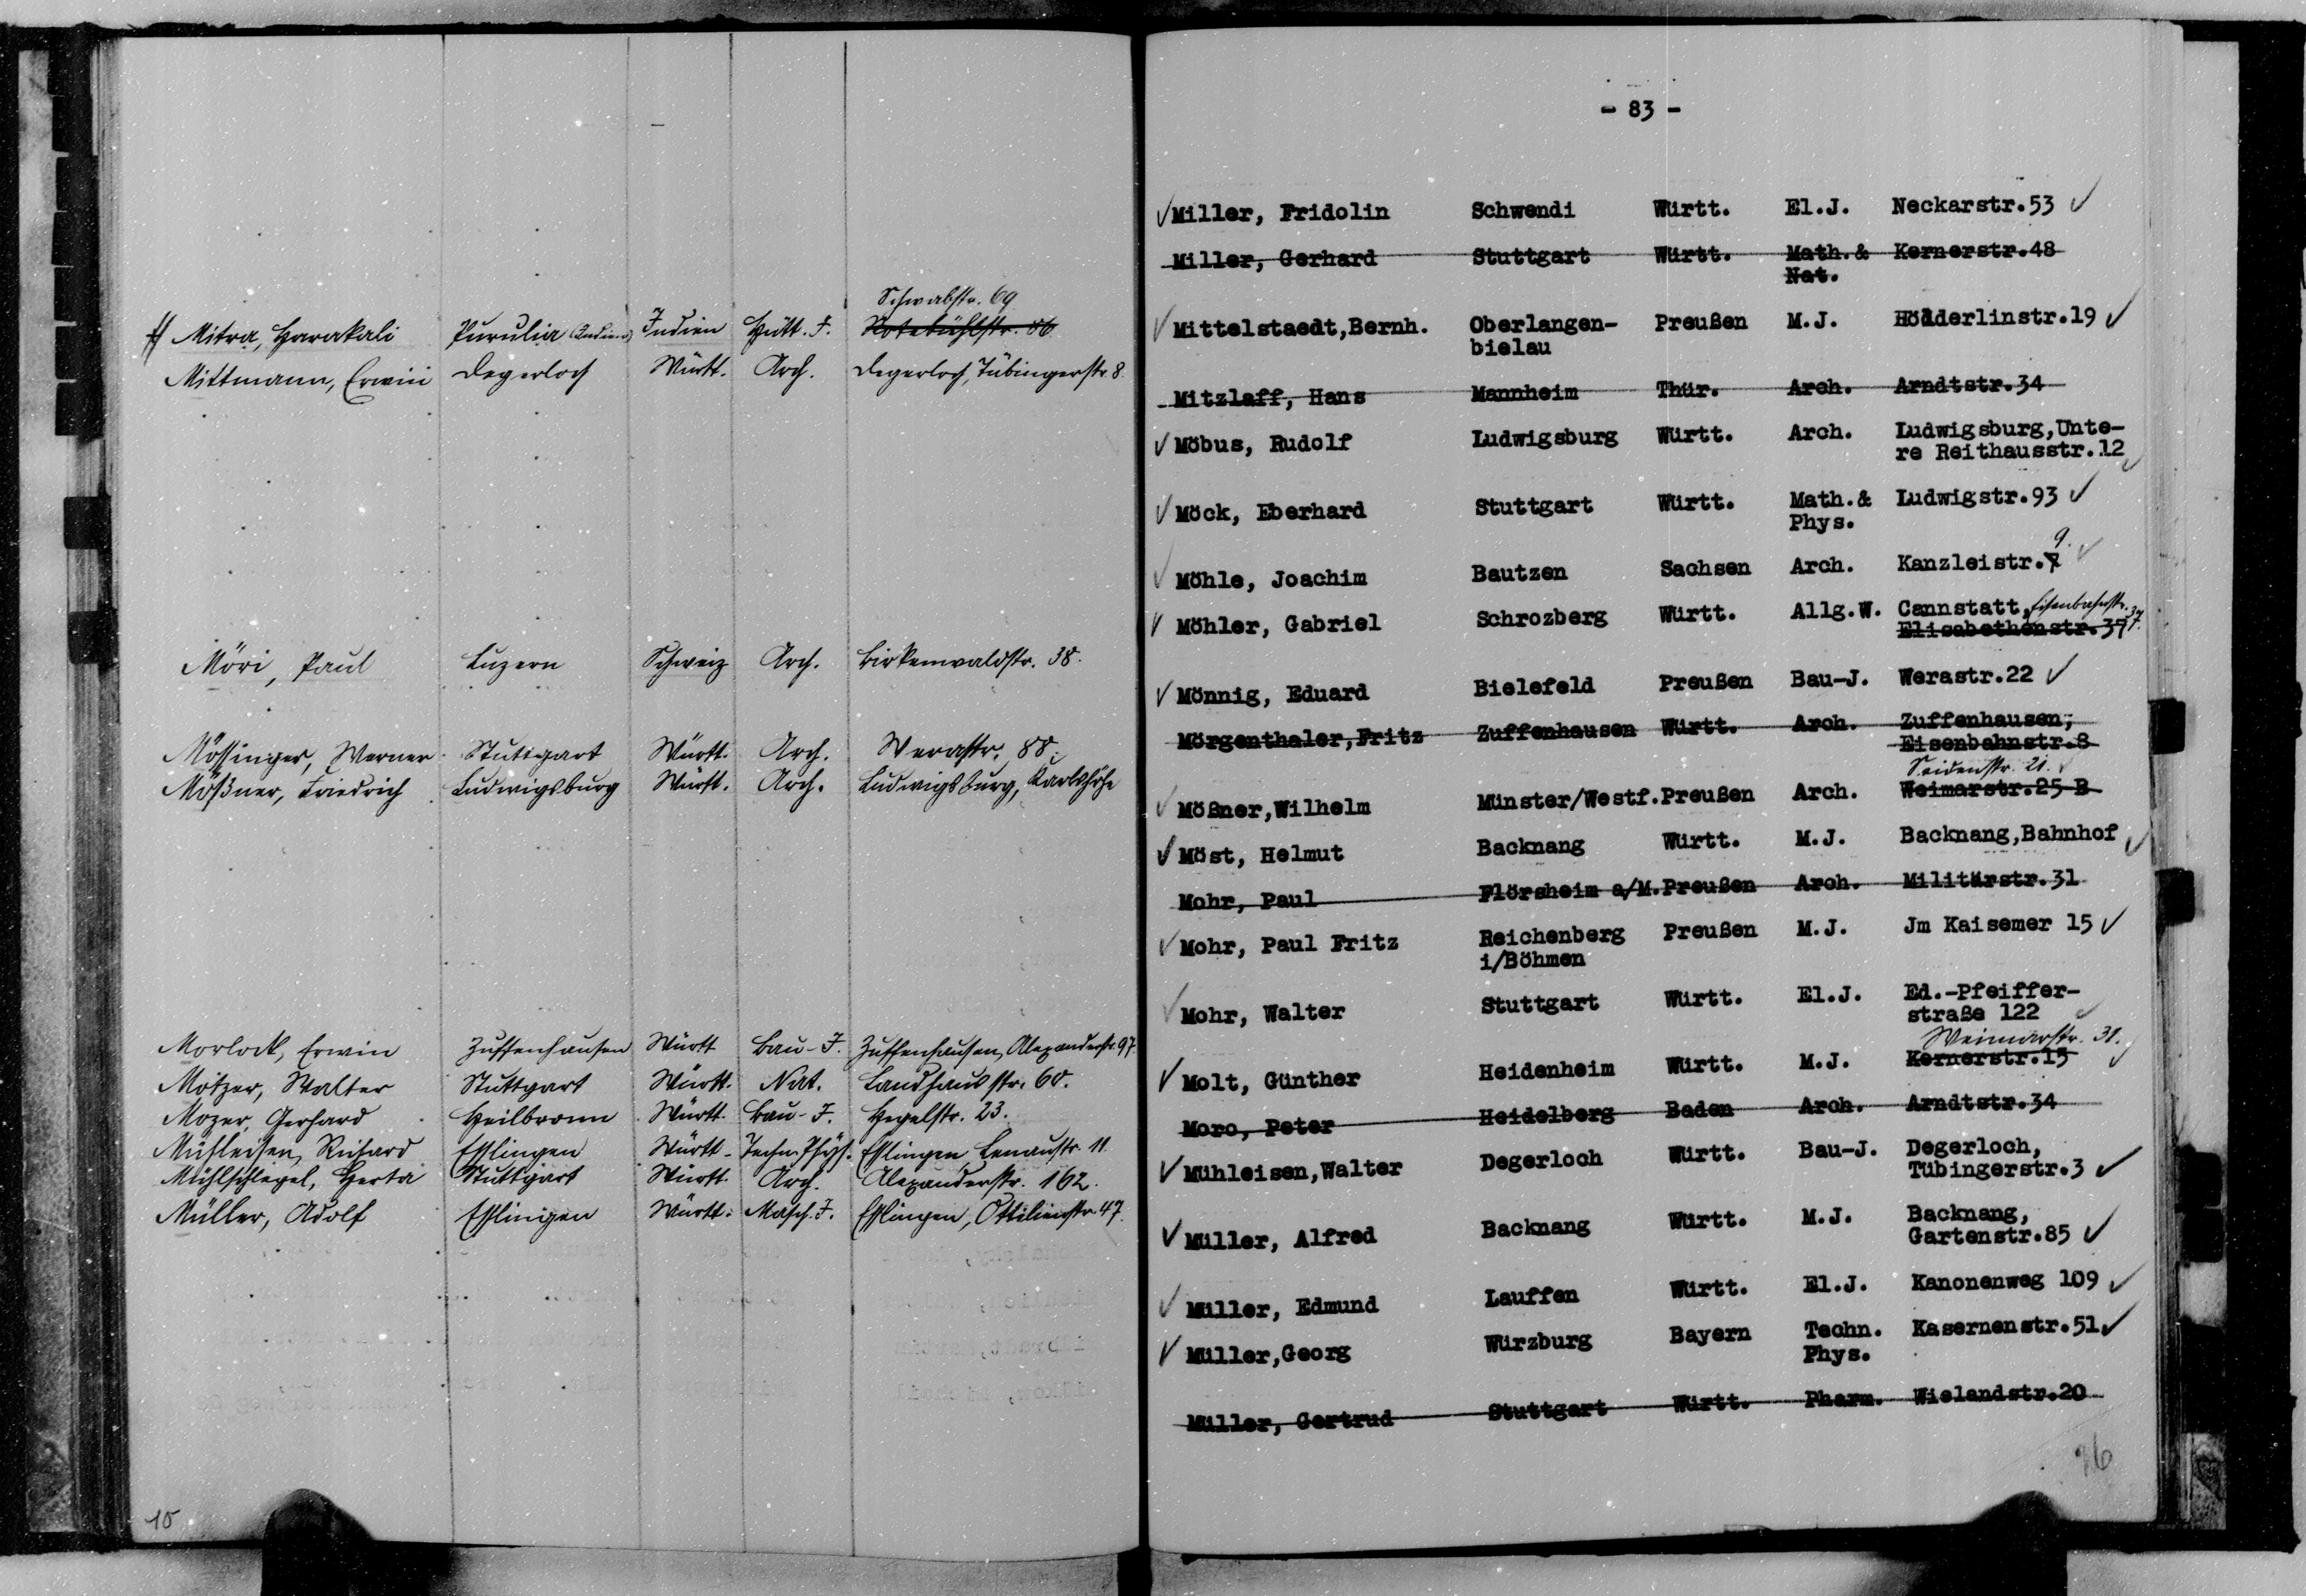 Schwabstr. 69
Mitra, Harakali Purulia (Indien) Indien Hütt. I. Rotebühlstr. 86
Mittmann, Erwin Degerloch Württ. Arch. Degerloch, Tübingerstr. 8.
Möri, Paul Luzern Schweiz Arch. Birkenwaldstr. 38.
Mössinger, Werner Stuttgart Württ. Arch. Werastr. 88.
Mößner, Friedrich Ludwigsburg Württ. Arch. Ludwigsburg, Karlshöhe
Morlock, Erwin Zuffenhausen Württ Bau-I. Zuffenhausen, Alexanderstr. 97.
Motzer, Walter Stuttgart Württ. Nat. Landhausstr. 60.
Mozer, Gerhard Heilbronn Württ. Bau-I. Hegelstr. 23.
Mühleisen, Richard Esslingen Württ. Techn. Phys. Esslingen Lenaustr. 11.
Mühlschlegel, Herta Stuttgart Württ. Arch. Alexanderstr. 162.
Müller, Adolf Esslingen Württ. Masch. I. Esslingen, Ottilienstr. 47.
10
- 83 -
Miller, Fridolin Schwendi Württ. El.J. Neckarstr.53
Miller, Gerhard Stuttgart Württ. Math.& Kernerstr.48
Nat.
Mittelstaedt,Bernh. Oberlangen- Preußen M.J. Hölderlinstr.19
bielau
Mitzlaff, Hans Mannheim Thür. Arch. Arndtstr.34
Möbus, Rudolf Ludwigsburg Württ. Arch. Ludwigsburg,Unte-
re Reithausstr.12
Möck, Eberhard Stuttgart Württ. Math.& Ludwigstr.93
Phys.
9.
Möhle, Joachim Bautzen Sachsen Arch. Kanzleistr.7
Möhler, Gabriel Schrozberg Württ. Allg.W. Cannstatt, Eisenbahnstr. 37.
Elisabethenstr.37
Mönnig, Eduard Bielefeld Preußen Bau-J. Werastr.22
Mörgenthaler,Fritz Zuffenhausen Württ. Arch. Zuffenhausen,
Eisenbahnstr.8
Seidenstr. 21.
Mößner,Wilhelm Münster/Westf.Preußen Arch. Weimarstr.25 B
Möst, Helmut Backnang Württ. M.J. Backnang,Bahnhof
Mohr, Paul Flörsheim a/M.Preußen Arch. Militärstr.31
Mohr, Paul Fritz Reichenberg Preußen M.J. Jm Kaisemer 15
i/Böhmen
Mohr, Walter Stuttgart Württ. El.J. Ed.-Pfeiffer-
straße 122
Weimarstr. 31.
Molt, Günther Heidenheim Württ. M.J. Kernerstr.15
Moro, Peter Heidelberg Baden Arch. Arndtstr.34
Mühleisen,Walter Degerloch Württ. Bau-J. Degerloch,
Tübingerstr.3
Müller, Alfred Backnang Württ. M.J. Backnang,
Gartenstr.85
Müller, Edmund Lauffen Württ. El.J. Kanonenweg 109
Müller,Georg Würzburg Bayern Techn. Kasernenstr.51
Phys.
Müller, Gertrud Stuttgart Württ. Pharm. Wielandstr.20
26